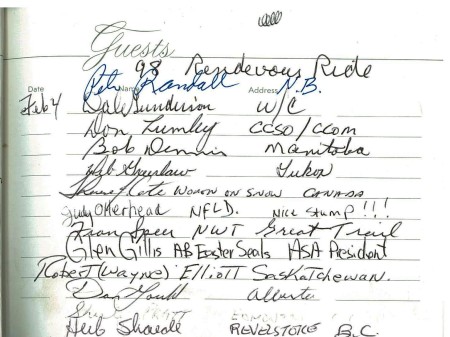 Guests
98 Rendevous Ride
Name Address
Peter Randall N.B.
Date
Feb 4 Dale Gunderson W/C
Don Lumley CCSO/CCOM
Bob Dennis Manitoba
Yukon
WOMEN ON SNOW CANADA
Judy Otterhead NFLD. NICE STUMP!!!
Fran Speer NWT Great Trail
Glen Gillis AB Easter Seals ASA President
Robert (Wayne) Elliott Saskatchewan.
Alberta
Herb REVELSTOKE B.C.